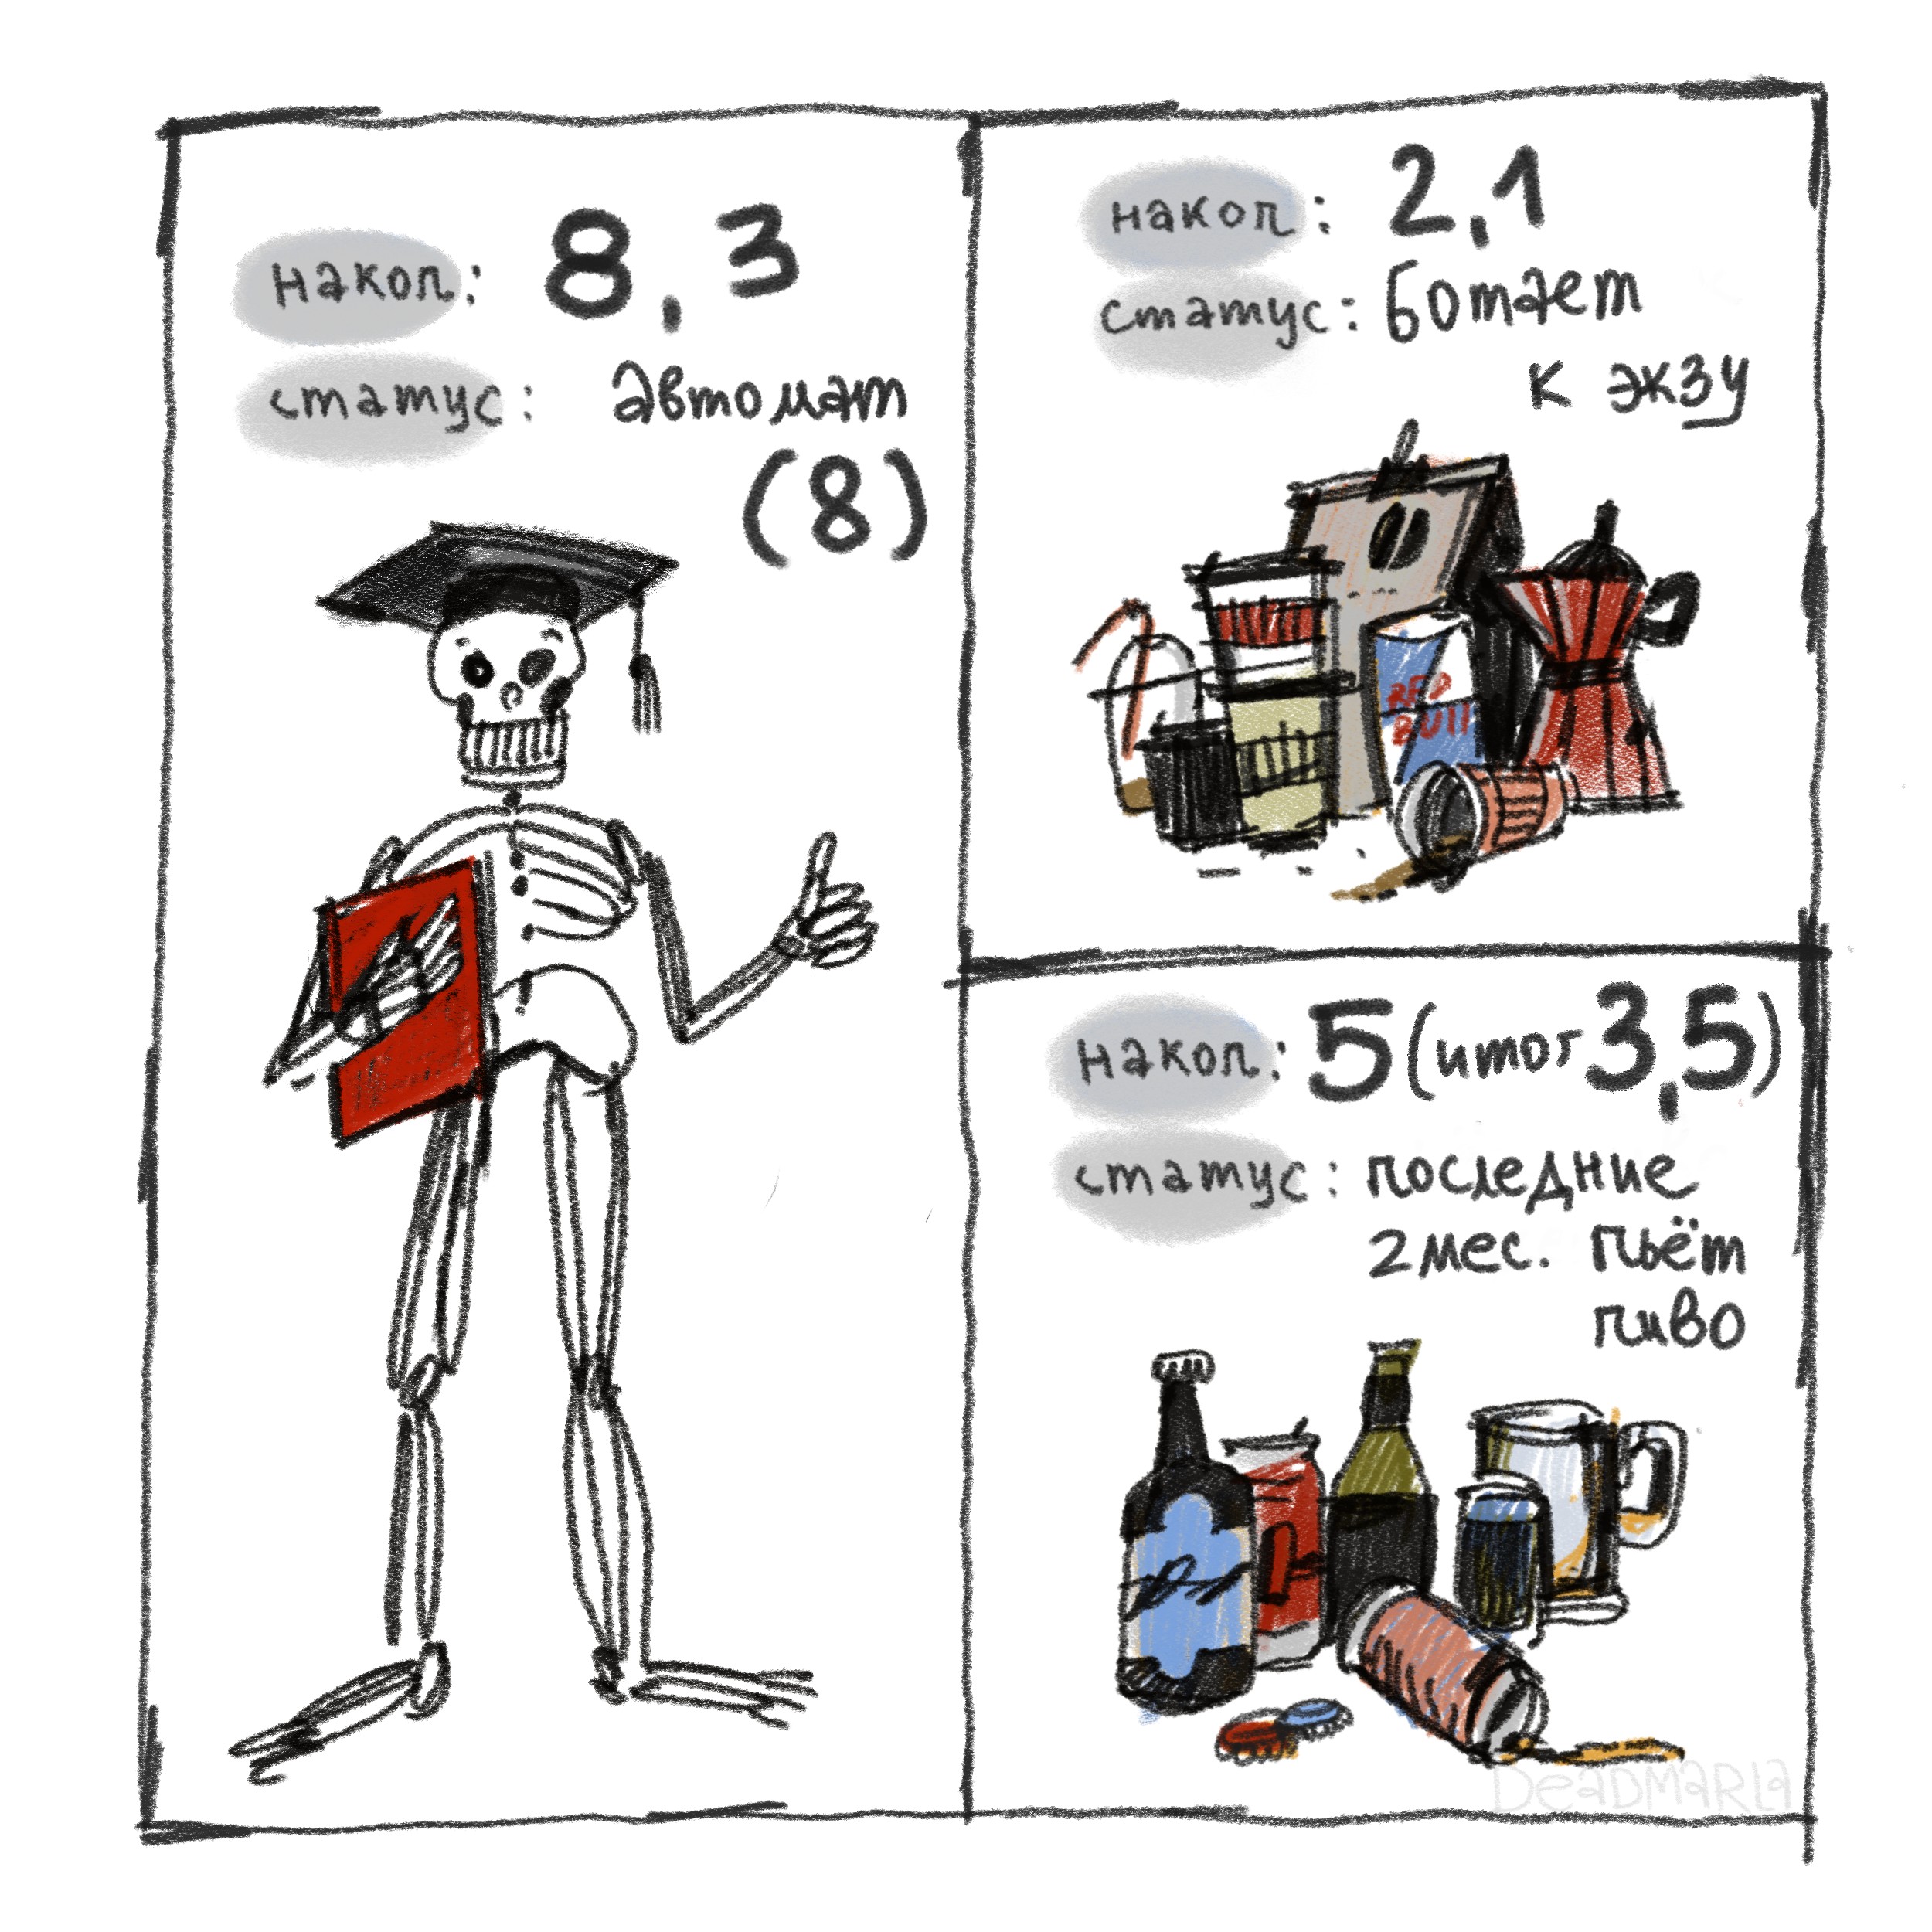 накоп: 8,3
статус: автомат
(8)
накоп: 2,1
статус: ботает
к экзу
RED
BULL
накоп: 5 (итог 3,5)
статус: последние
2 мес. пьёт
пиво
DEADMARLA